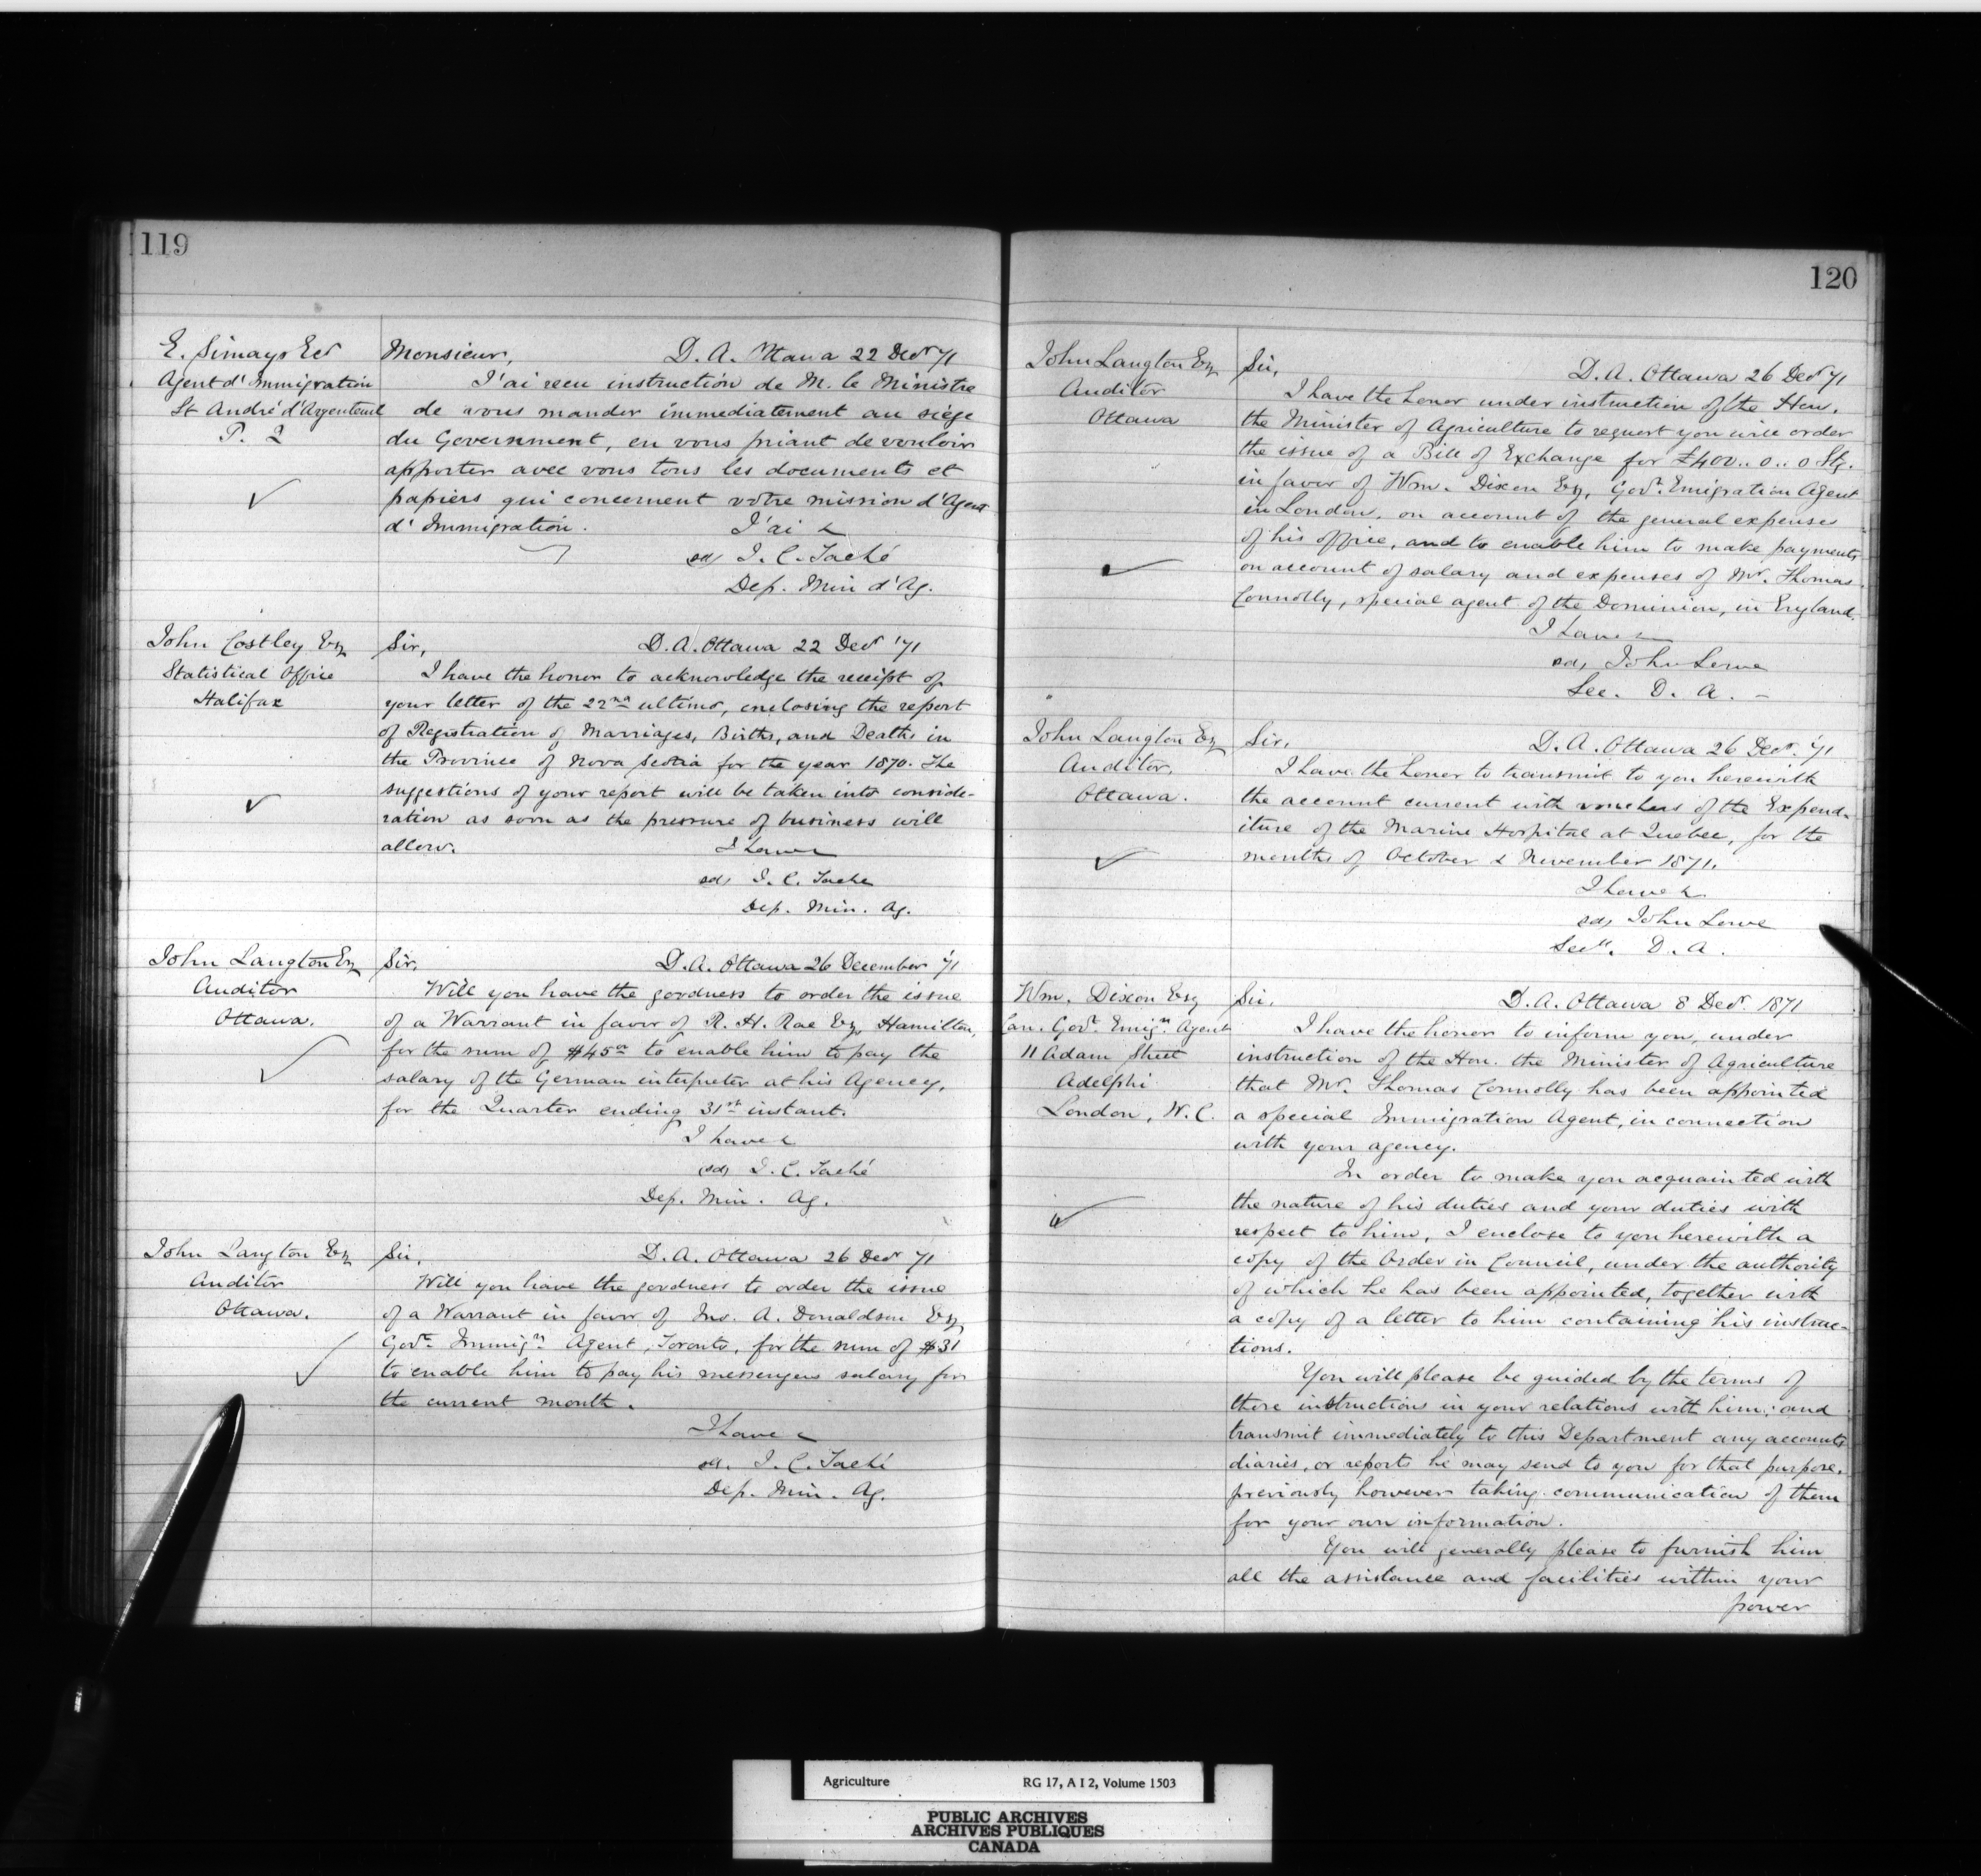 119
E. Simays Ecr
Agent d'Immigration
St André d'Argenteuil
P. Q
Monsieur, D. A. Ottawa 22 Decr 71
J'ai recu instruction de M. le Ministre
de vous mander immediatement au siège
du Government, en vous priant de vouloir
apporter avec vous tous les documents et
papiers qui concernent votre mission d'Agent
d'Immigration. J'ai &
sd, J. C. Taché
Dep. Min d'Ag.
John Costley Esq
Statistical Office
Halifax
Sir, D. A. Ottawa 22 Decr '71
I have the honor to acknowledge the receipt of
your letter of the 22nd ultimo, enclosing the report
of Registration of Marriages, Births, and Deaths in
the Province of Nova Scotia for the year 1870. The
suggestions of your report will be taken into conside-
ration as soon as the pressure of business will
allow. I have &
sd, J. C. Tache
Dep. Min. Ag.
John Langton Esq
Auditor
Ottawa.
Sir, D. A. Ottawa 26 December '71
Will you have the goodness to order the issue
of a Warrant in favor of R. H. Rae Esq, Hamilton,
for the sum of $45 00 to enable him to pay the
salary of the German interpreter at his Agency,
for the Quarter ending 31st instant.
I have &
sd, J. C. Taché
Dep. Min. Ag.
John Langton Esq
Auditor
Ottawa.
Sir, D. A. Ottawa 26 Decr 71
Will you have the goodness to order the issue
of a Warrant in favor of Jno. A. Donaldson Esq
Govt Immign Agent, Toronto, for the sum of $31
to enable him to pay his messengers salary for
the current month.
I have &
sd. J. C. Taché
Dep. Min. Ag.
120
John Langton Esq
Auditor
Ottawa
Sir, D. A. Ottawa 26 Decr 71
I have the honor under instruction of the Hon.
the Minister of Agriculture to request you will order
the issue of a Bill of Exchange for £400..0..0 Stg.
in favor of Wm. Dixon Esq, Govt. Emigration Agent
in London, on account of the general expenses
of his office, and to enable him to make payments
on account of salary and expenses of Mr. Thomas
Connolly, special agent of the Dominion, in England.
I have &
sd, John Lowe
Sec. D. A. -
John Langton Esq
Auditor,
Ottawa.
Sir, D. A. Ottawa 26 Decr. '71
I have the honor to transmit to you herewith
the account current with vouchers of the Expend-
iture of the Marine Hospital at Quebec, for the
months of October & November 1871.
I have &
sd, John Lowe
Secy. D. A.
Wm. Dixon Esq
Can. Govt. Emign. Agent
11 Adam Street
Adelphi
London, W. C.
Sir, D. A. Ottawa 8 Decr. 1871
I have the honor to inform you, under
instruction of the Hon. the Minister of Agriculture
that Mr. Thomas Connolly has been appointed
a special Immigration Agent, in connection
with your agency.
In order to make you acquainted with
the nature of his duties and your duties with
respect to him, I enclose to you herewith a
copy of the Order in Council, under the authority
of which he has been appointed, together with
a copy of a letter to him containing his instruc-
tions.
You will please be guided by the terms of
these instructions in your relations with him; and
transmit immediately to this Department any accounts
diaries, or reports he may send to you for that purpose,
previously however taking communication of them
for your own information.
You will generally please to furnish him
all the assistance and facilities within your
power
Agriculture RG 17, A I 2, Volume 1503
PUBLIC ARCHIVES
ARCHIVES PUBLIQUES
CANADA